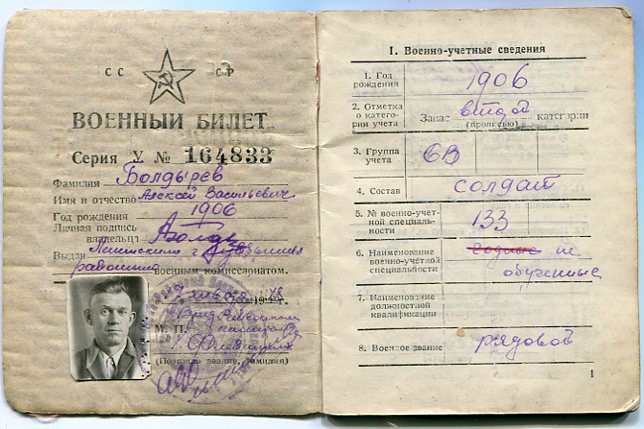 СС СР
ВОЕННЫЙ БИЛЕТ
Серия У № 164833
Фамилия Болдырев
Имя и отчество Алексей Васильевич
Год рождения 1906
Личная подпись
владельца
Выдан
районным военным комиссариатом.
М. П.
(Подпись, звание, фамилия)
1. Военно-учетные сведения
1. Год рождения 1906
2. Отметка о категории учета Запас второй категории
(прописью)
3. Группа учета СВ
4. Состав солдат
5. № военно-учетной специальности 133
6. Наименование военно-учетной специальности не обученные
7. Наименование должностной квалификации
8. Военное звание рядовой
1